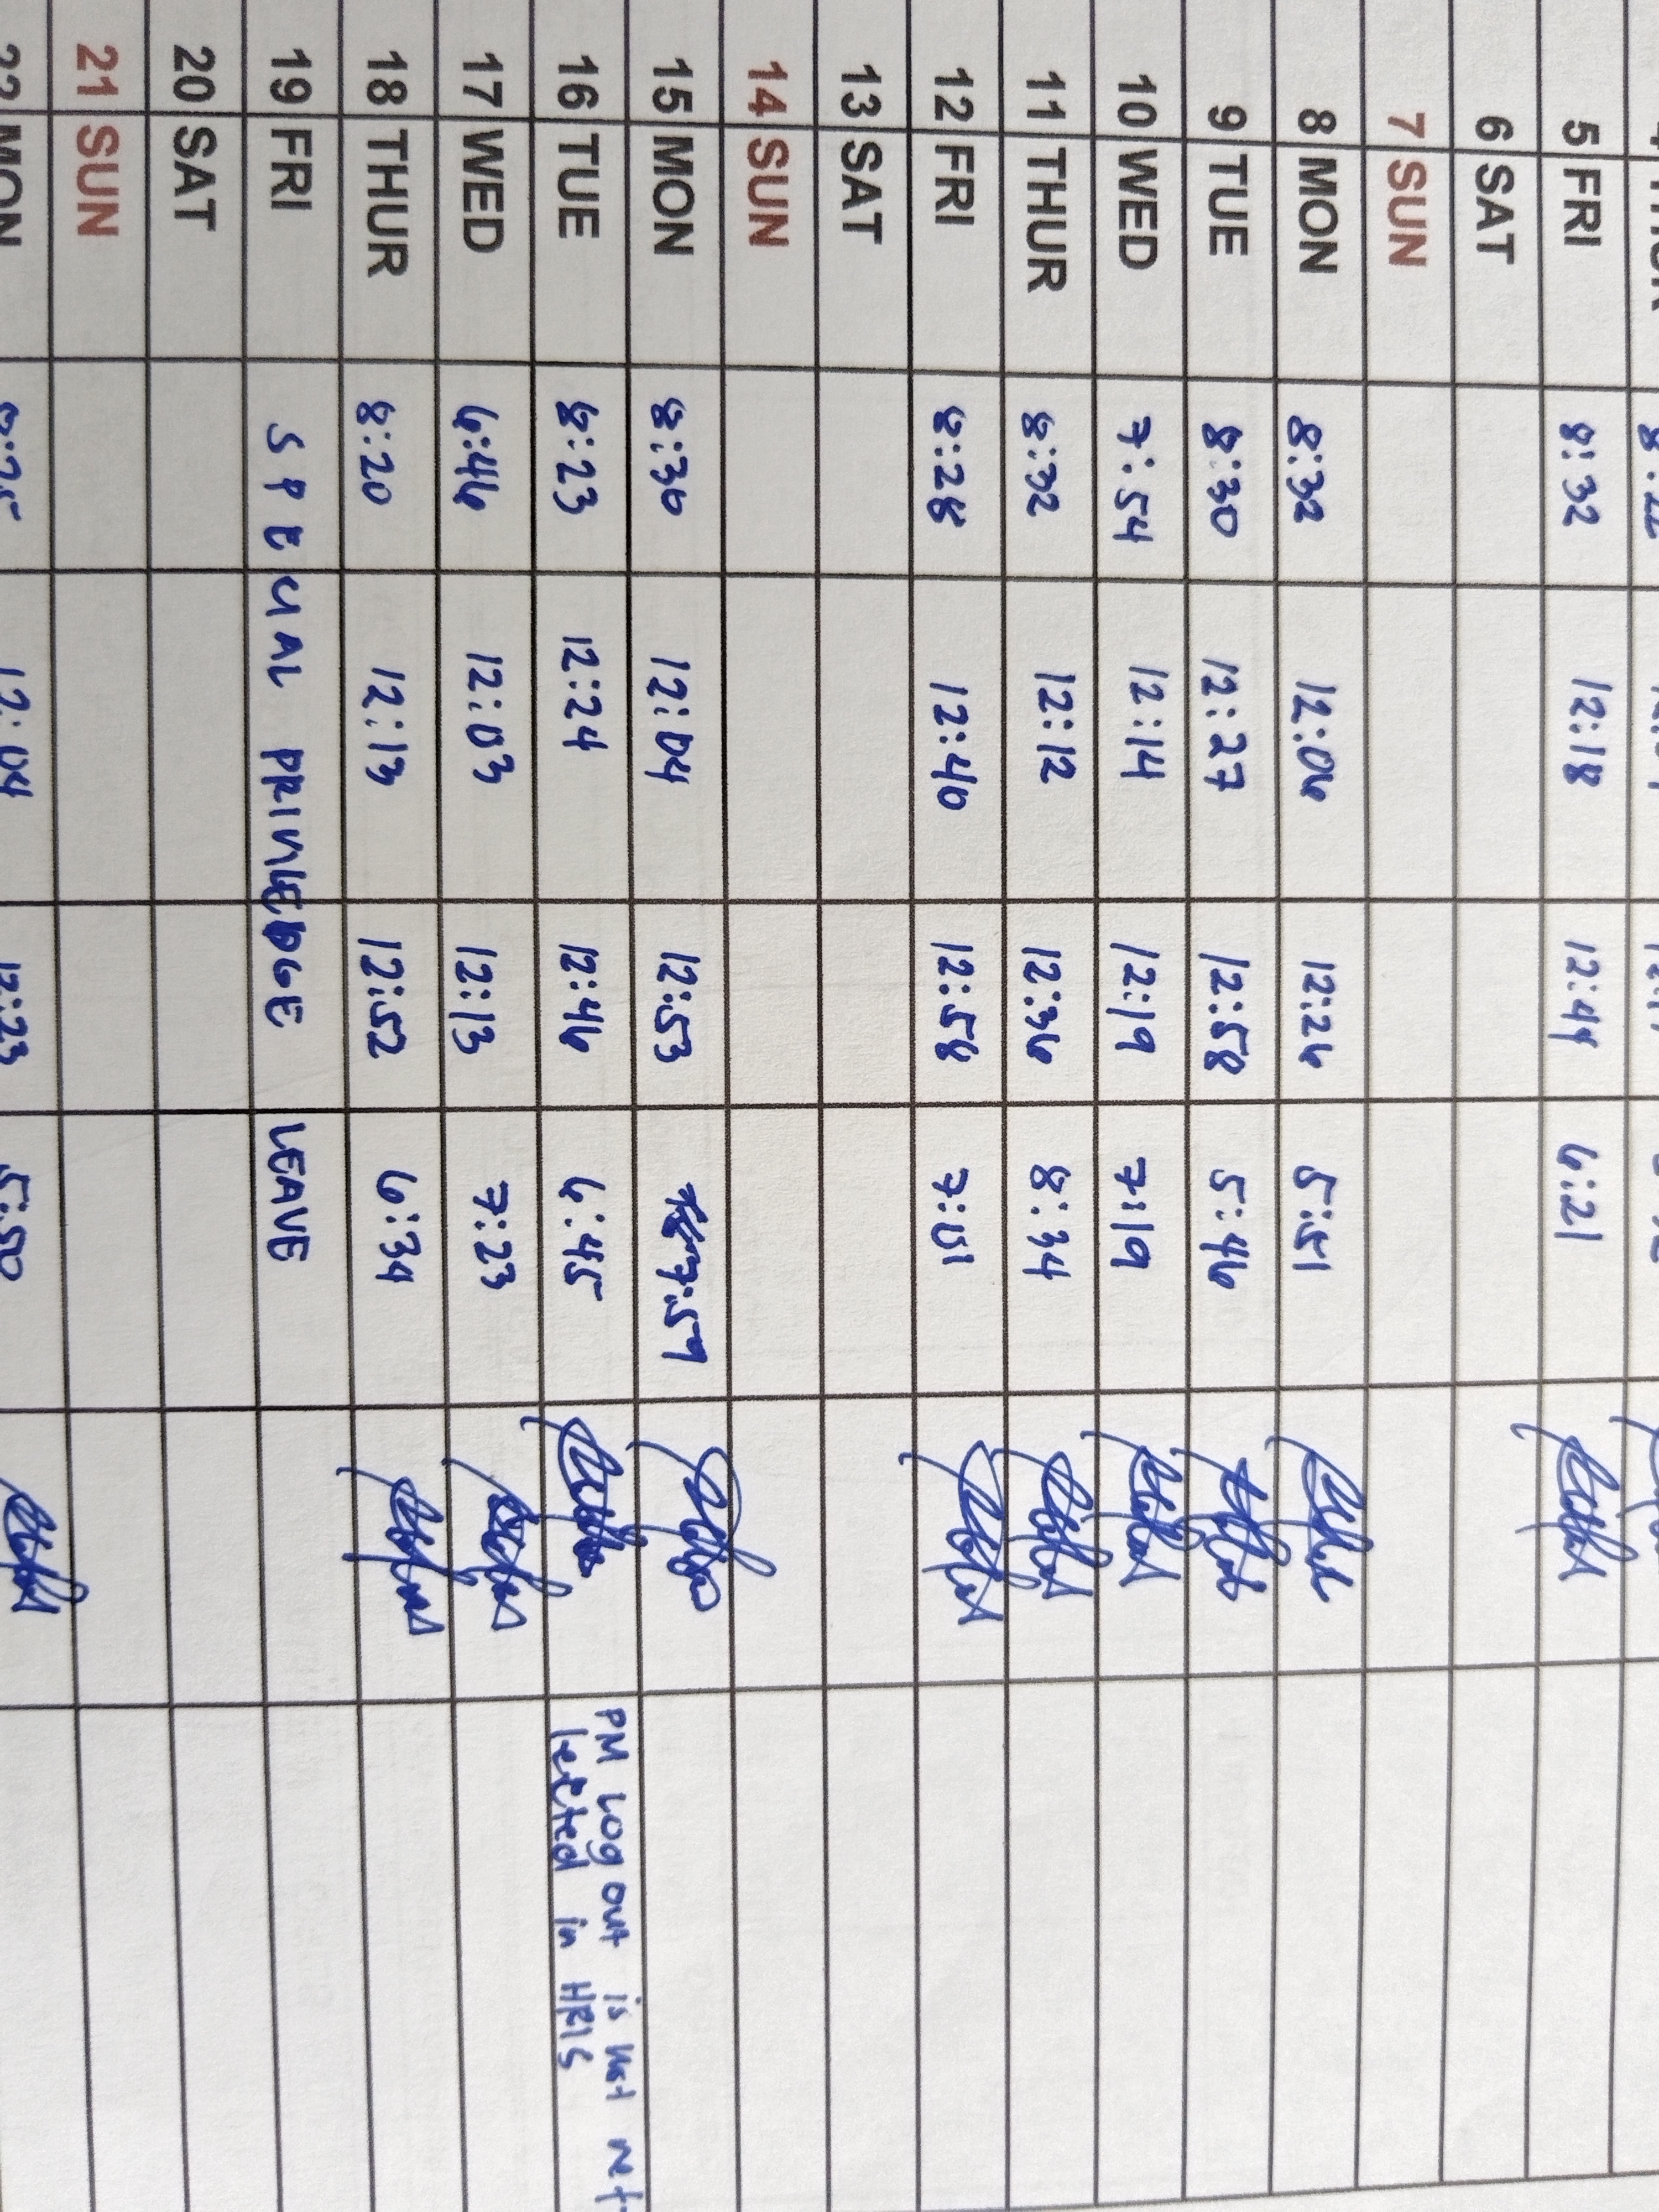 5 FRI 8:32 12:18 12:44 6:21
6 SAT
7 SUN
8 MON 8:32 12:06 12:26 5:51
9 TUE 8:30 12:27 12:58 5:46
10 WED 7:54 12:14 12:19 7:19
11 THUR 8:32 12:12 12:36 8:34
12 FRI 8:28 12:40 12:58 7:01
13 SAT
14 SUN
15 MON 8:30 12:04 12:53 7:59
16 TUE 8:23 12:24 12:46 6:45 PM Log out is not ref
lected in HRIS
17 WED 6:46 12:03 12:13 7:23
18 THUR 8:20 12:13 12:52 6:34
19 FRI SPECIAL PRIVILEDGE LEAVE
20 SAT
21 SUN
22 MON 8:25 12:04 12:23 5:50